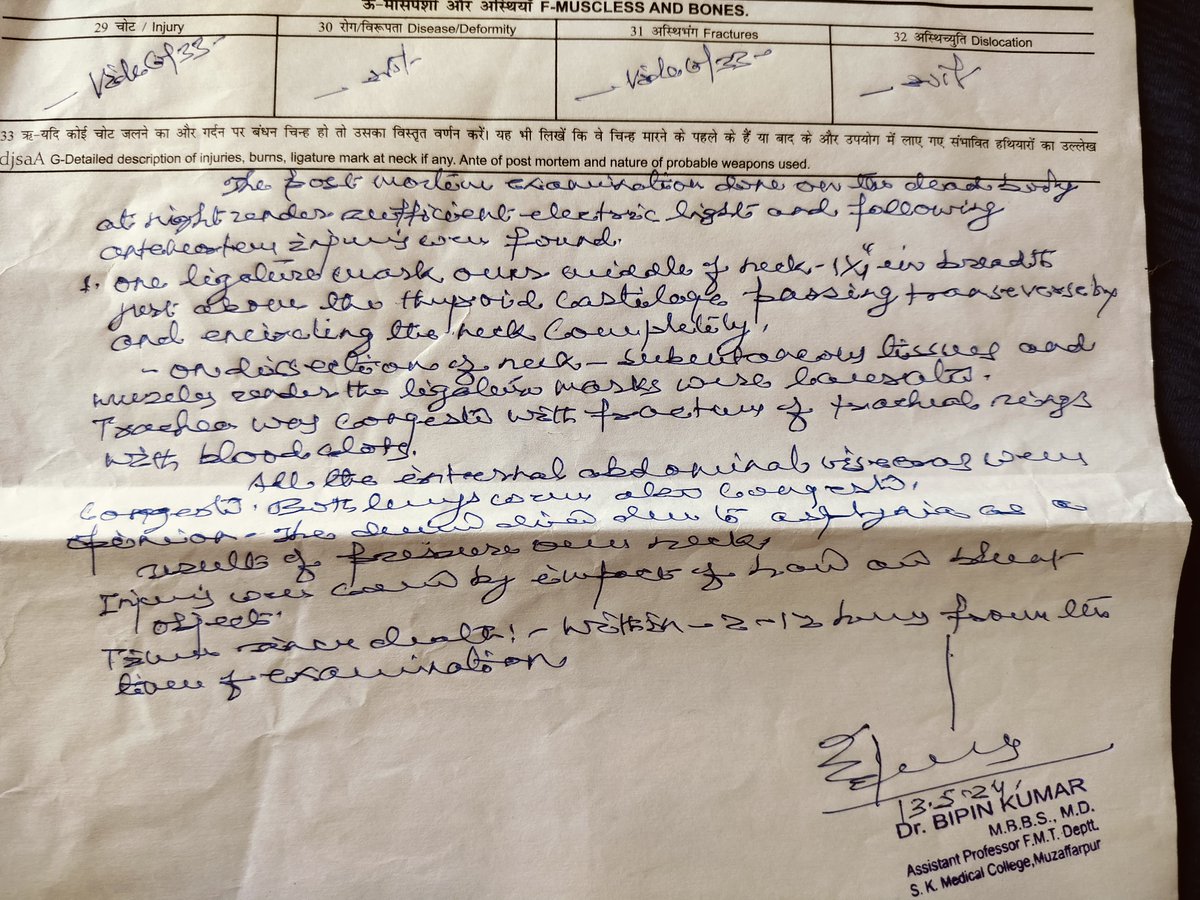 ऊ-मांसपेशी और अस्थियाँ F-MUSCLESS AND BONES.
29 चोट / Injury
30 रोग/विरूपता Disease/Deformity
31 अस्थिभंग Fractures
32 अस्थिच्युति Dislocation
- Vide G/33 -
- Vide G/33 -
33 ऋ-यदि कोई चोट जलने का और गर्दन पर बंधन चिन्ह हो तो उसका विस्तृत वर्णन करें। यह भी लिखें कि वे चिन्ह मारने के पहले के हैं या बाद के और उपयोग में लाए गए संभावित हथियारों का उल्लेख
djsaA G-Detailed description of injuries, burns, ligature mark at neck if any. Ante of post mortem and nature of probable weapons used.
The post mortem examination done on the dead body
at night under sufficient electric light and following
antemortem injuries were found.
1. one ligature mark over middle of neck - in breadth
just above the thyroid cartilage passing transeversely
and encircling the neck completely.
- on dissection of neck - subcutaneous tissues and
muscles under the ligature marks were
Trachea was congested with fracture of tracheal rings
with blood clots.
All the internal abdominal visceras were
congested. Both lungs were also congested.
opinion - The deceased died due to asphyxia as a
results of pressure over neck.
Injuries were caused by impact of hard and blunt
object.
Time since death :- within - 2 - 12 hours from the
time of examination
13.5.24
Dr. BIPIN KUMAR
M.B.B.S., M.D.
Assistant Professor F.M.T. Deptt.
S. K. Medical College,Muzaffarpur